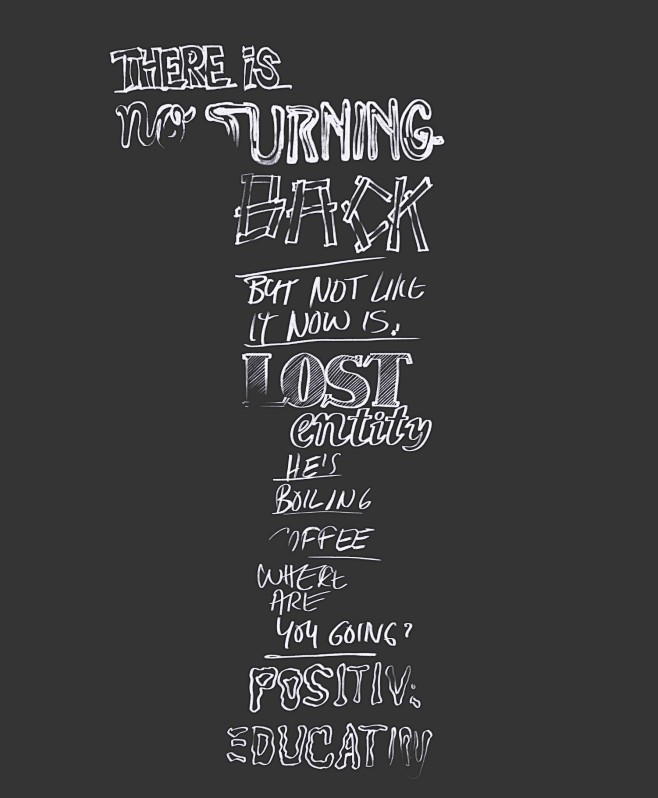 THERE IS
no TURNING
BACK
BUT NOT LIKE
IT NOW IS.
LOST
entity
HE'S
BOILING
COFFEE
WHERE
ARE
YOU GOING?
POSITIV
EDUCATION